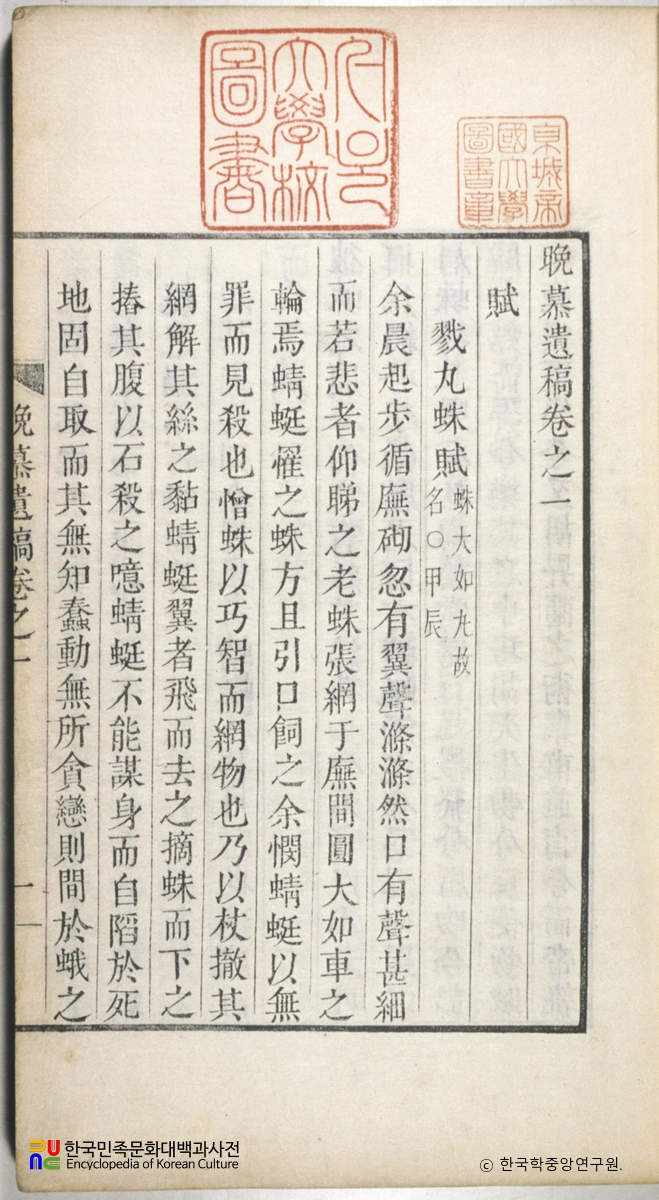 京城帝
國大學
圖書章
大學校
圖書
晩慕遺稿卷之一
賦
戮丸蛛賦 蛛大如丸故
名○甲辰
余晨起步循廡砌忽有翼聲滌滌然口有聲甚細
而若悲者仰睇之老蛛張網于廡間圓大如車之
輪焉蜻蜓罹之蛛方且引口飼之余憫蜻蜓以無
罪而見殺也憎蛛以巧智而網物也乃以杖撤其
網解其絲之黏蜻蜓翼者飛而去之摘蛛而下之
摏其腹以石殺之噫蜻蜓不能謀身而自陷於死
地固自取而其無知蠢動無所貪戀則間於蛾之
晩慕遺稿卷之一
一
한국민족문화대백과사전
Encyclopedia of Korean Culture
© 한국학중앙연구원.